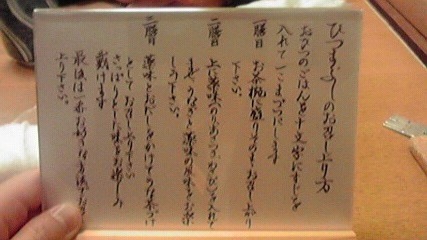 ひつまぶしのお召し上り方
おひつのごはんを十文字にすじを
入れて一こまづつにします
一膳目 お茶椀に盛りそのままお召し上り
下さい。
二膳目 上に薬味のりわさびをかけ
まぜうなぎと薬味の風味をお楽
しみ下さい。
三膳 薬味とおだしをかけてうな茶づけ
としてお召し上り下さい
さっぱりとした味をお楽しみ
戴けます
最後は一番お好みなお召し方で
上り下さい。